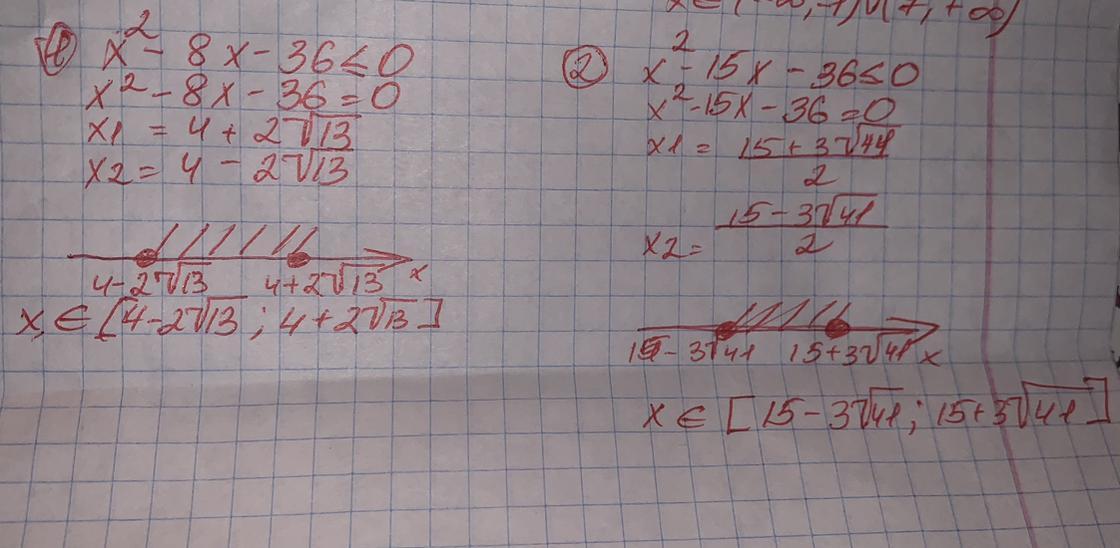 x ∈ (-∞, -7) ∪ (7, +∞)
① x² - 8x - 36 ≤ 0
x² - 8x - 36 = 0
x1 = 4 + 2√13
x2 = 4 - 2√13
4-2√13 4+2√13 x
x ∈ [4-2√13 ; 4+2√13]
② x² - 15x - 36 ≤ 0
x² - 15x - 36 = 0
x1 = (15 + 3√41)/2
x2 = (15 - 3√41)/2
15 - 3√41 15+3√41 x
x ∈ [15 - 3√41 ; 15+3√41]